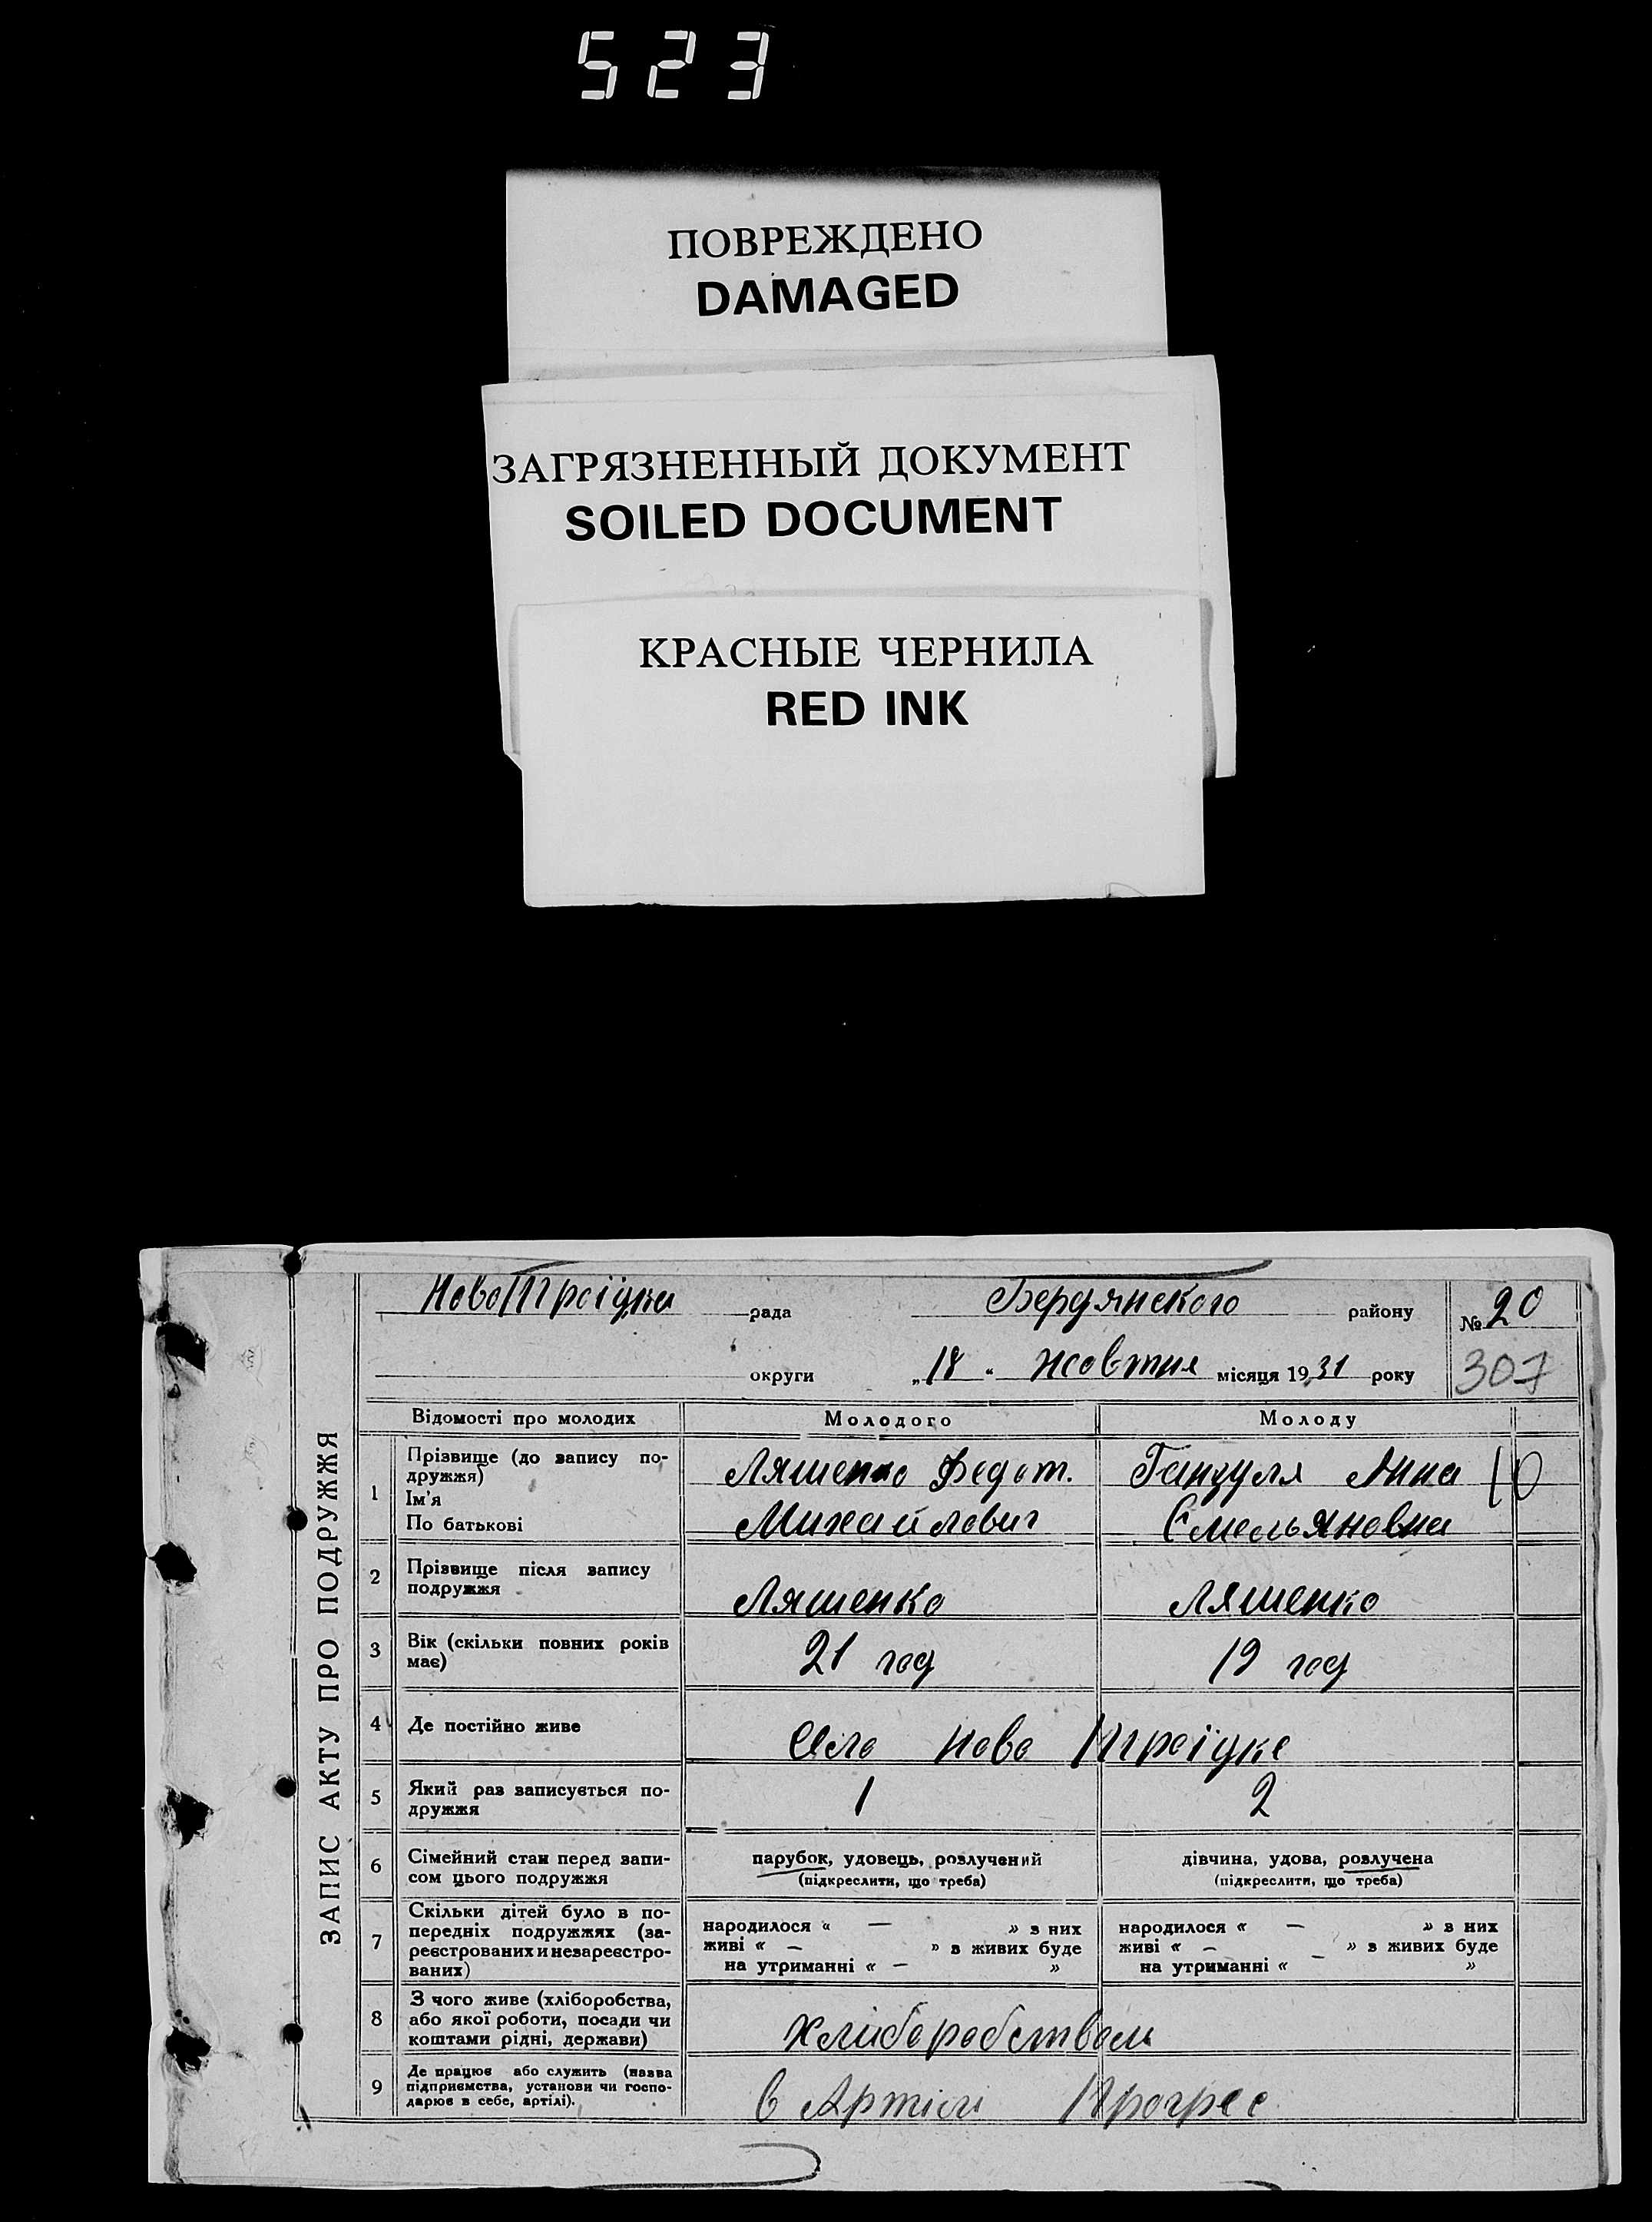 523
ПОВРЕЖДЕНО
DAMAGED
ЗАГРЯЗНЕННЫЙ ДОКУМЕНТ
SOILED DOCUMENT
КРАСНЫЕ ЧЕРНИЛА
RED INK
ЗАПИС АКТУ ПРО ПОДРУЖЖЯ
НовоТроїцка рада Бердянского району № 20
округи „18“ жовтня місяця 1931 року 307
Відомості про молодих Молодого Молоду
1 Прізвище (до запису по-
дружжя)
Ім'я
По батькові
Ляшенко Федот.
Михайлович
Ганзуля Анна 10
Емельяновна
2 Прізвище після запису
подружжя
Ляшенко Ляшенко
3 Вік (скільки повних років
має)
21 год 19 год
4 Де постійно живе
Село Ново Троїцке
5 Який раз записується по-
дружжя
1 2
6 Сімейний стан перед запи-
сом цього подружжя
парубок, удовець, розлучений
(підкреслити, що треба)
дівчина, удова, розлучена
(підкреслити, що треба)
7 Скільки дітей було в по-
передніх подружжях (за-
реєстрованих и незареєстро-
ваних)
народилося « — » з них
живі « — » з живих буде
на утриманні « — »
народилося « — » з них
живі « — » з живих буде
на утриманні « — »
8 З чого живе (хліборобства,
або якої роботи, посади чи
коштами рідні, держави)
хліборобством
9 Де працює або служить (назва
підприємства, установи чи госпо-
дарює в себе, артілі).
в Артілі Прогрес